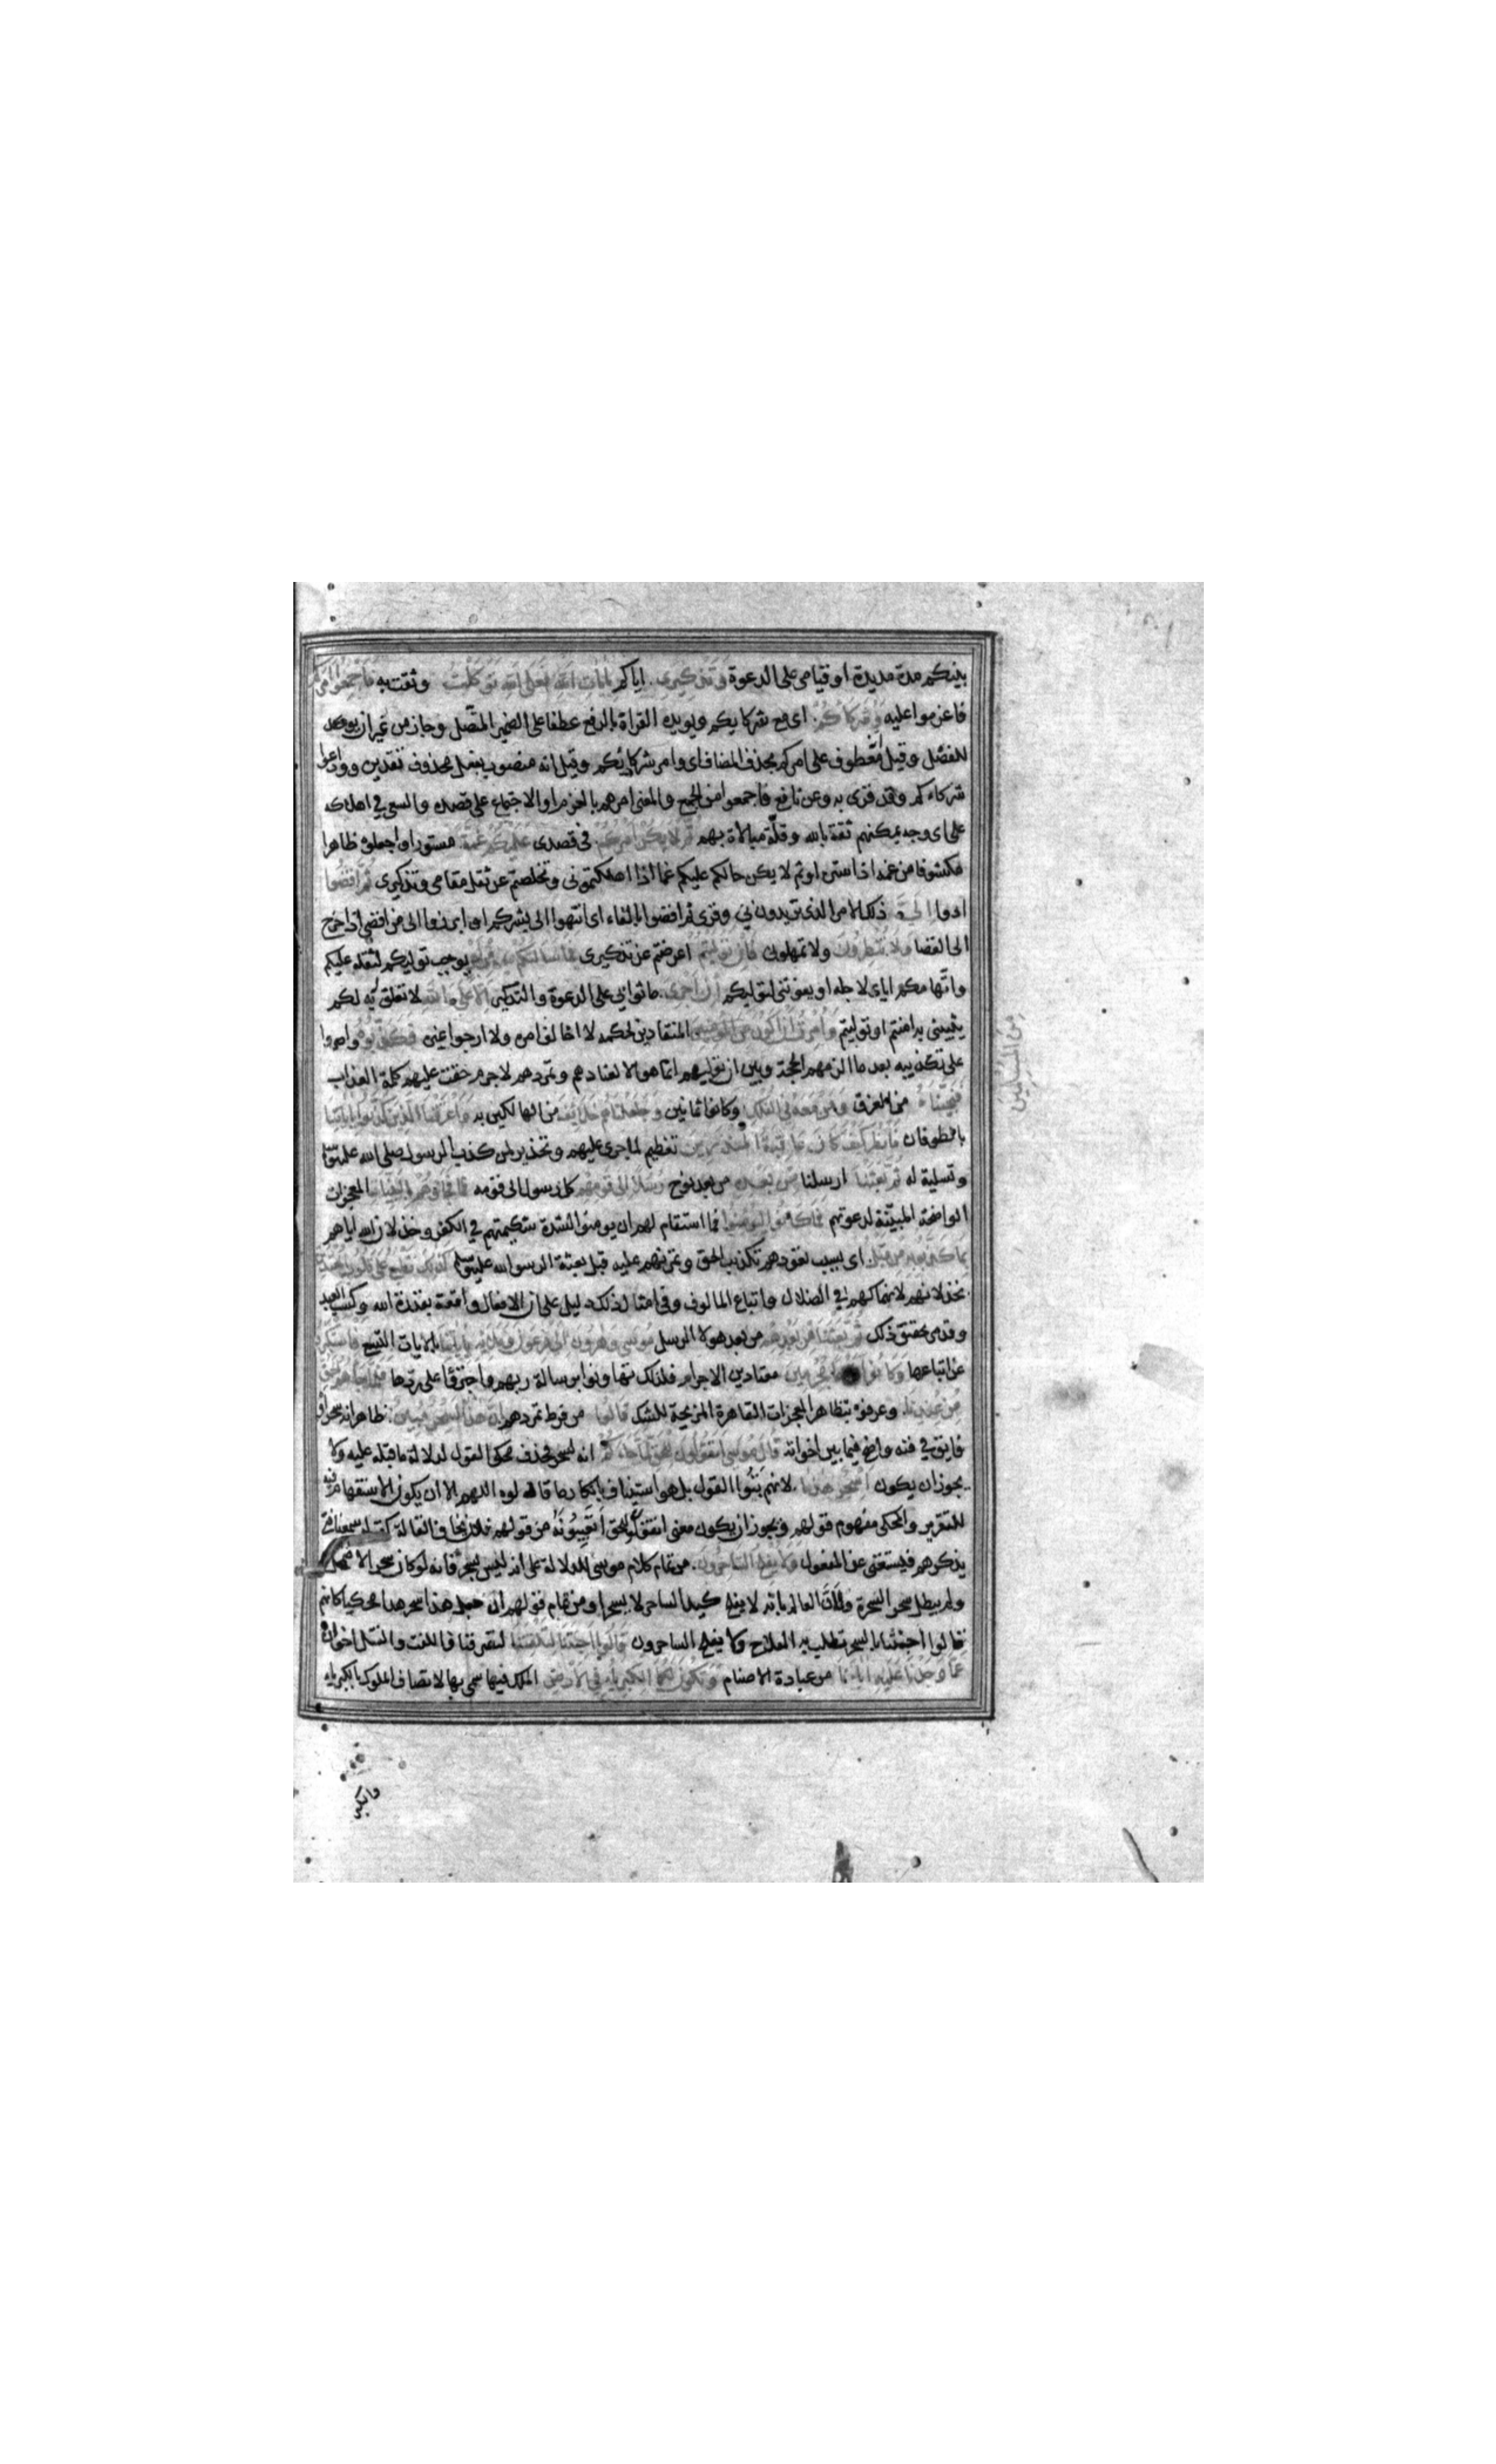 بينكم مدة مديدة او قيامى على الدعوة وتذكيرى اياكم بايات الله فعلى الله توكلت وثقت به فاجمعوا امركم
فاعزموا عليه وشركاءكم اى مع شركايكم ويويده القراة بالرفع عطفا على الضمير المتصل وجاز من غير ان يوكد
للفصل وقيل انه معطوف على امركم بحذف المضاف اى وامر شركائكم وقيل انه منصوب بفعل محذوف تقديره وادعوا
شركاءكم وقد قرى به وعن نافع فاجمعوا من الجمع والمعنى امرهم بالعزم او الاجتماع على قصده والسعى في اهلاكه
على اى وجه يمكنهم ثقة بالله وقلة مبالاة بهم ثم لا يكن امركم فى قصدى عليكم غمة مستورا واجعلوه ظاهرا
مكشوفا من غمه اذا ستره او ثم لا يكن حالكم عليكم غما اذا اهلكتمونى وتخلصتم عن ثقل مقامى وتذكيرى ثم اقضوا
ادوا الىّ ذلك الامر الذى تريدون بي وقرى ثم افضوا بالفاء اى انتهوا الى بشركم او ابرزوا الى من افضى اذا خرج
الى الفضا ولا تنظرون ولا تمهلون فان توليتم اعرضتم عن تذكيرى فما سالتكم من اجر يوجب توليكم لثقله عليكم
واتهامكم اياى لاجله او يفوتنى لتوليكم ان اجرى ما ثوابي على الدعوة والتذكير الا على الله لا تعلق له بكم
يثيبنى به امنتم او توليتم وامرت ان اكون من المسلمين المنقادين لحكمه لا اخالف امره ولا ارجوا غيره فكذبوه واصروا
على تكذيبه بعد ما الزمهم الحجة وبين ان توليهم انما هو لا لعنادهم وتمردهم لاجرم حقت عليهم كلمة العذاب
فنجيناه من الغرق ومن معه فى الفلك وكانوا ثمانين وجعلناهم خلائف من الهالكين به واغرقنا الذين كذبوا باياتنا
بالطوفان فانظر كيف كان عاقبة المنذرين تعظيم لما جرى عليهم وتحذير لمن كذب الرسول صلى الله عليه وسلم
وتسلية له ثم بعثنا ارسلنا من بعده من بعد نوح رسلا الى قومهم كل رسول الى قومه فجاؤهم بالبينات بالمعجزات
الواضحة المبيّنة لدعوتهم فما كانوا ليؤمنوا فما استقام لهم ان يومنوا لشدة شكيمتهم في الكفر وخذلان الله اياهم
بما كذبوا به من قبل اى بسبب تعودهم تكذيب الحق وتمرنهم عليه قبل بعثة الرسول عليه السلام كذلك نطبع على قلوب المعتدين
بخذلانهم لانهماكهم في الضلال واتباع المالوف وفي امثال ذلك دليل على ان الافعال واقعة بقدرة الله وكسب العبد
وقد مر تحقيق ذلك ثم بعثنا من بعدهم من بعد هولا الرسل موسى وهرون الى فرعون وملايه باياتنا بالايات التسع فاستكبروا
عن اتباعها وكانوا قوما مجرمين معتادين الاجرام فلذلك تهاونوا برسالة ربهم واجترؤا على ردها فلما جاءهم الحق
من عندنا وعرفوه بتظاهر المعجزات القاهرة المزيحة للشك قالوا من فرط تمردهم ان هذا لسحر مبين ظاهر انه سحر او
فايق في فنه واضح فيما بين اخواته قال موسى اتقولون للحق لما جاءكم انه لسحر فحذف محكى القول لدلالة ما قبله عليه ولا
يجوز ان يكون اسحر هذا لانهم بتوا القول بل هو استيناف بانكار ما قالوه اللهم الا ان يكون الاستفهام فيه
للتقرير والمحكى مفهوم قولهم ويجوز ان يكون معنى اتقولون للحق اتعيبونه من قولهم فلان يخاف القالة كقوله سمعنا فتى
يذكرهم فيستغنى عن المفعول ولا يفلح الساحرون من تمام كلام موسى للدلالة على انه ليس بسحر فانه لو كان سحرا لاضمحل
ولم يبطل سحر السحرة ولان العالم بانه لا يفلح كيد الساحر لا يسحر او من تمام قولهم ان جعل هذا سحر هذا محكيا كانهم
قالوا اجئتنا بالسحر تطلب به الفلاح ولا يفلح الساحرون قالوا اجئتنا لتلفتنا لتصرفنا واللفت والفتل اخوان
عما وجدنا عليه اباءنا من عبادة الاصنام وتكون لكما الكبرياء في الارض الملك فيها سمى بها لاتصاف الملوك بالكبرياء
من المسلمين